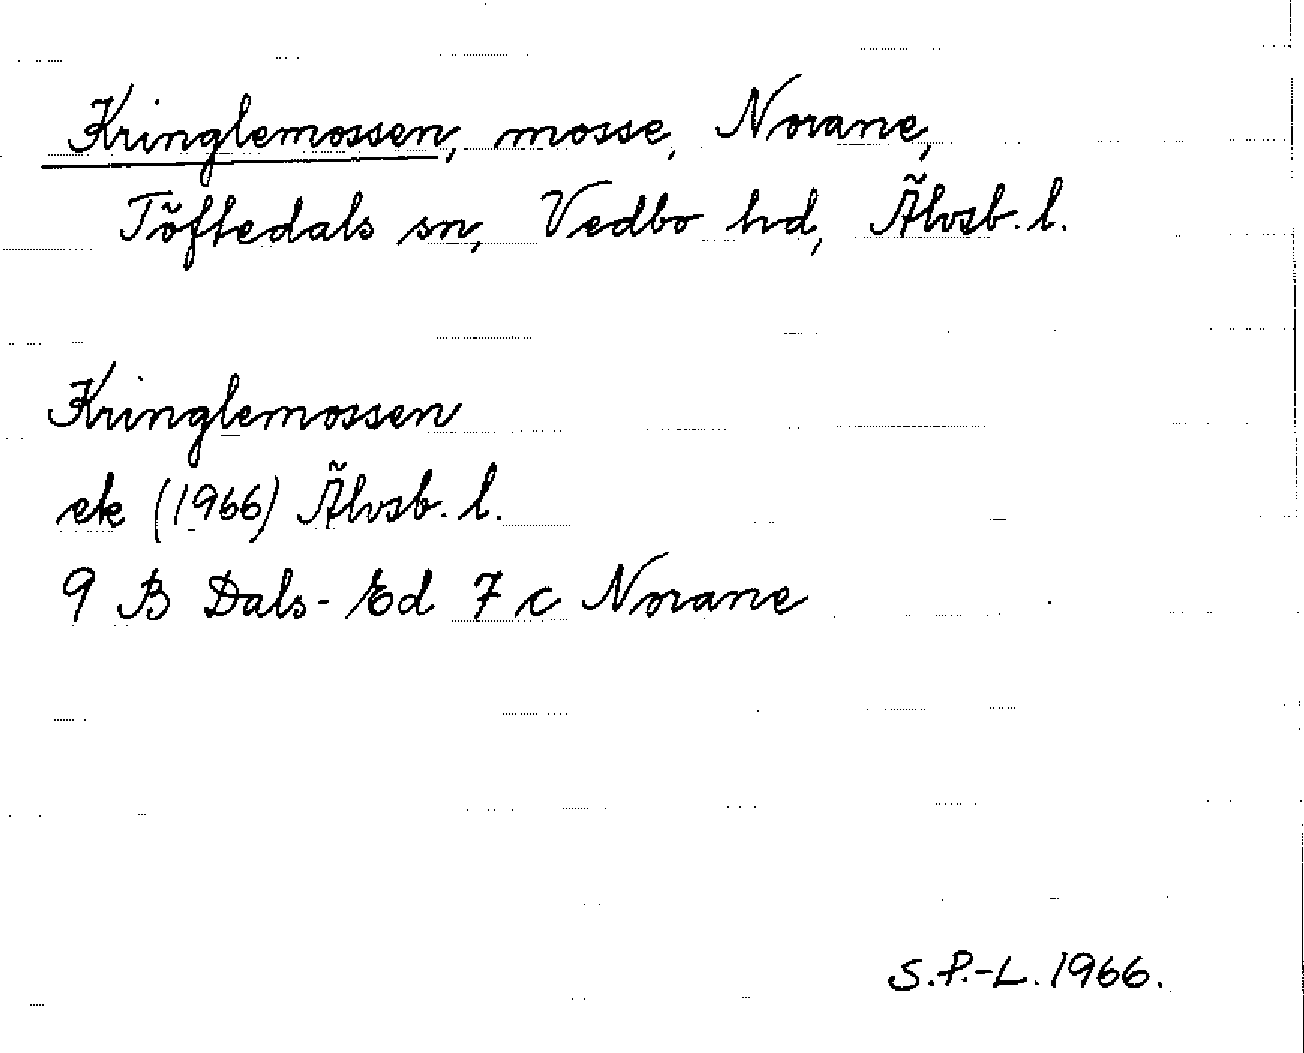 Kringlemossen, mosse, Norane,
Töftedals sn, Vedbo hd, Älvsb. l.
Kringlemossen
ek (1966) Älvsb. l.
9 B Dals-Ed 7 c Norane
S.P.-L. 1966.